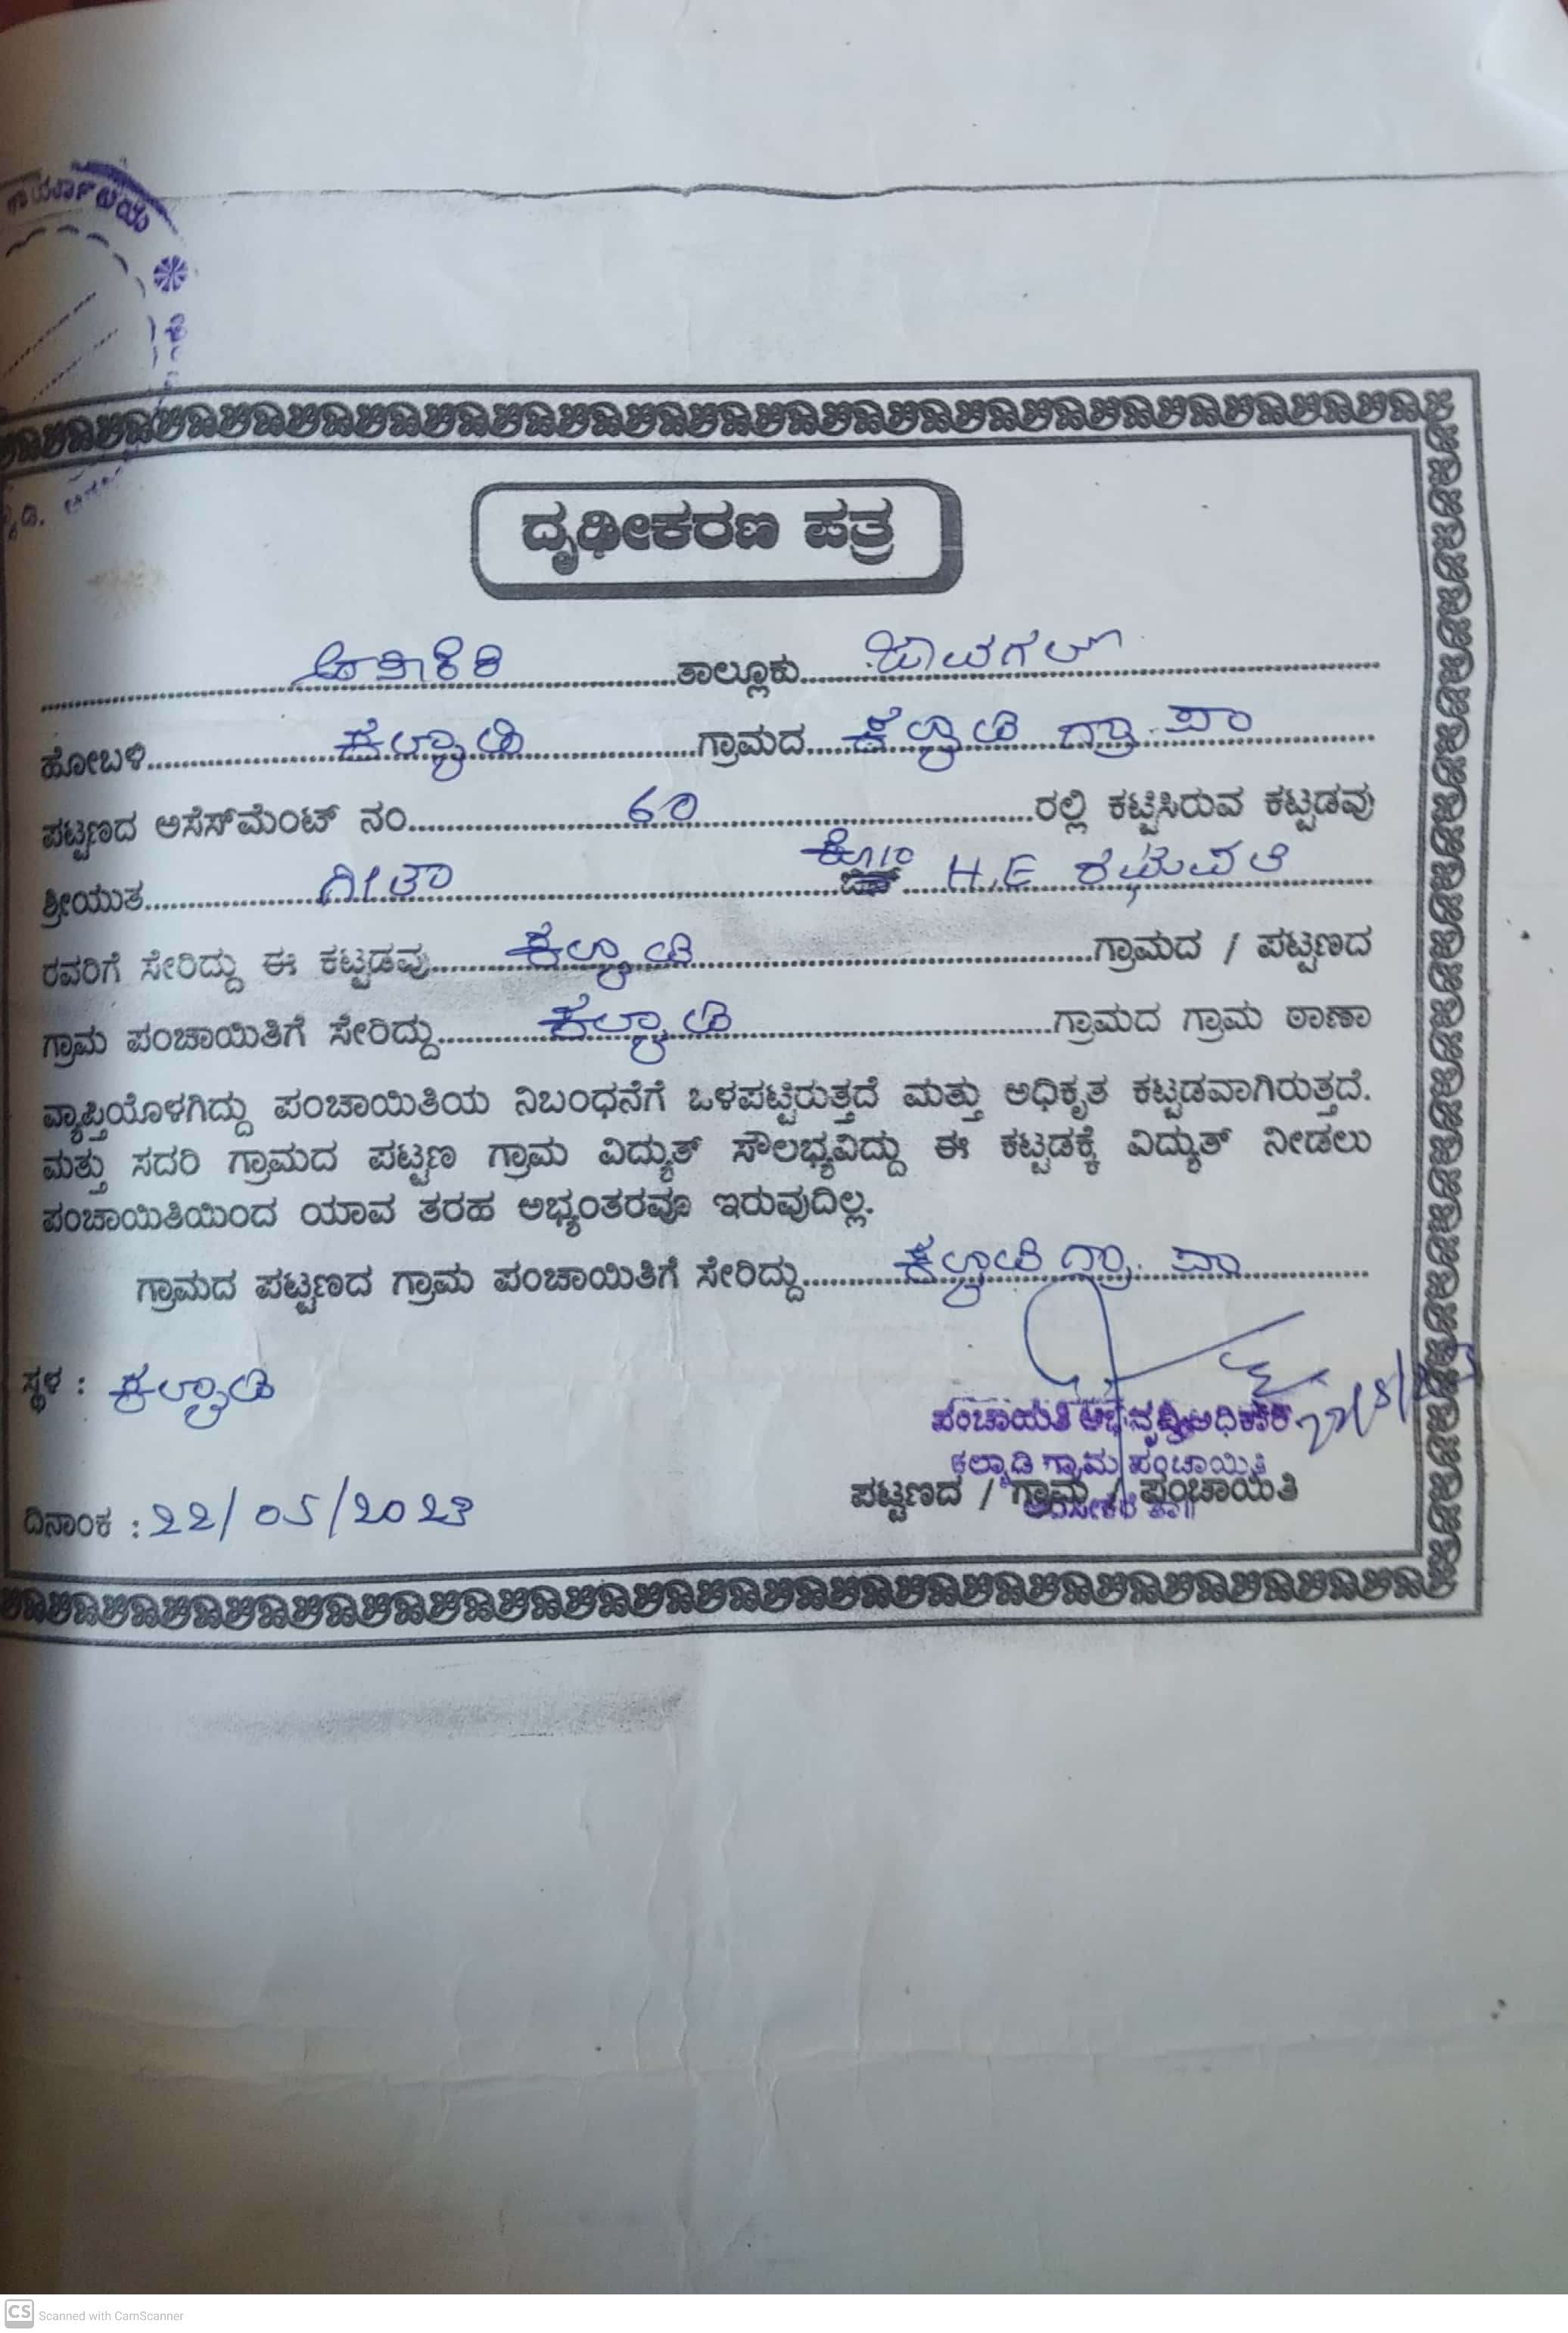 ಕಾರ್ಯಾಲಯ
ದೃಢೀಕರಣ ಪತ್ರ
ಅರಸೀಕೆರೆ ತಾಲ್ಲೂಕು ಜಾವಗಲ್
ಹೋಬಳಿ ಕಲ್ಯಾಡಿ ಗ್ರಾಮದ ಕಲ್ಯಾಡಿ ಗ್ರಾ. ಪಂ
ಪಟ್ಟಣದ ಅಸೆಸ್‌ಮೆಂಟ್ ನಂ 60 ರಲ್ಲಿ ಕಟ್ಟಿಸಿರುವ ಕಟ್ಟಡವು
ಶ್ರೀಯುತ ಗೀತಾ ಕೋಂ H.E ರಘುಪತಿ
ರವರಿಗೆ ಸೇರಿದ್ದು ಈ ಕಟ್ಟಡವು ಕಲ್ಯಾಡಿ ಗ್ರಾಮದ / ಪಟ್ಟಣದ
ಗ್ರಾಮ ಪಂಚಾಯಿತಿಗೆ ಸೇರಿದ್ದು ಕಲ್ಯಾಡಿ ಗ್ರಾಮದ ಗ್ರಾಮ ಠಾಣಾ
ವ್ಯಾಪ್ತಿಯೊಳಗಿದ್ದು ಪಂಚಾಯಿತಿಯ ನಿಬಂಧನೆಗೆ ಒಳಪಟ್ಟಿರುತ್ತದೆ ಮತ್ತು ಅಧಿಕೃತ ಕಟ್ಟಡವಾಗಿರುತ್ತದೆ.
ಮತ್ತು ಸದರಿ ಗ್ರಾಮದ ಪಟ್ಟಣ ಗ್ರಾಮ ವಿದ್ಯುತ್ ಸೌಲಭ್ಯವಿದ್ದು ಈ ಕಟ್ಟಡಕ್ಕೆ ವಿದ್ಯುತ್ ನೀಡಲು
ಪಂಚಾಯಿತಿಯಿಂದ ಯಾವ ತರಹ ಅಭ್ಯಂತರವೂ ಇರುವುದಿಲ್ಲ.
ಗ್ರಾಮದ ಪಟ್ಟಣದ ಗ್ರಾಮ ಪಂಚಾಯಿತಿಗೆ ಸೇರಿದ್ದು ಕಲ್ಯಾಡಿ ಗ್ರಾ. ಪಂ
ಸ್ಥಳ : ಕಲ್ಯಾಡಿ
ಪಂಚಾಯತಿ ಅಭಿವೃದ್ಧಿ ಅಧಿಕಾರಿ
ಕಲ್ಯಾಡಿ ಗ್ರಾಮ ಪಂಚಾಯಿತಿ
ಪಟ್ಟಣದ / ಗ್ರಾಮ / ಪಂಚಾಯಿತಿ
ಅರಸೀಕೆರೆ ತಾ॥
ದಿನಾಂಕ : 22/05/2023
CS Scanned with CamScanner